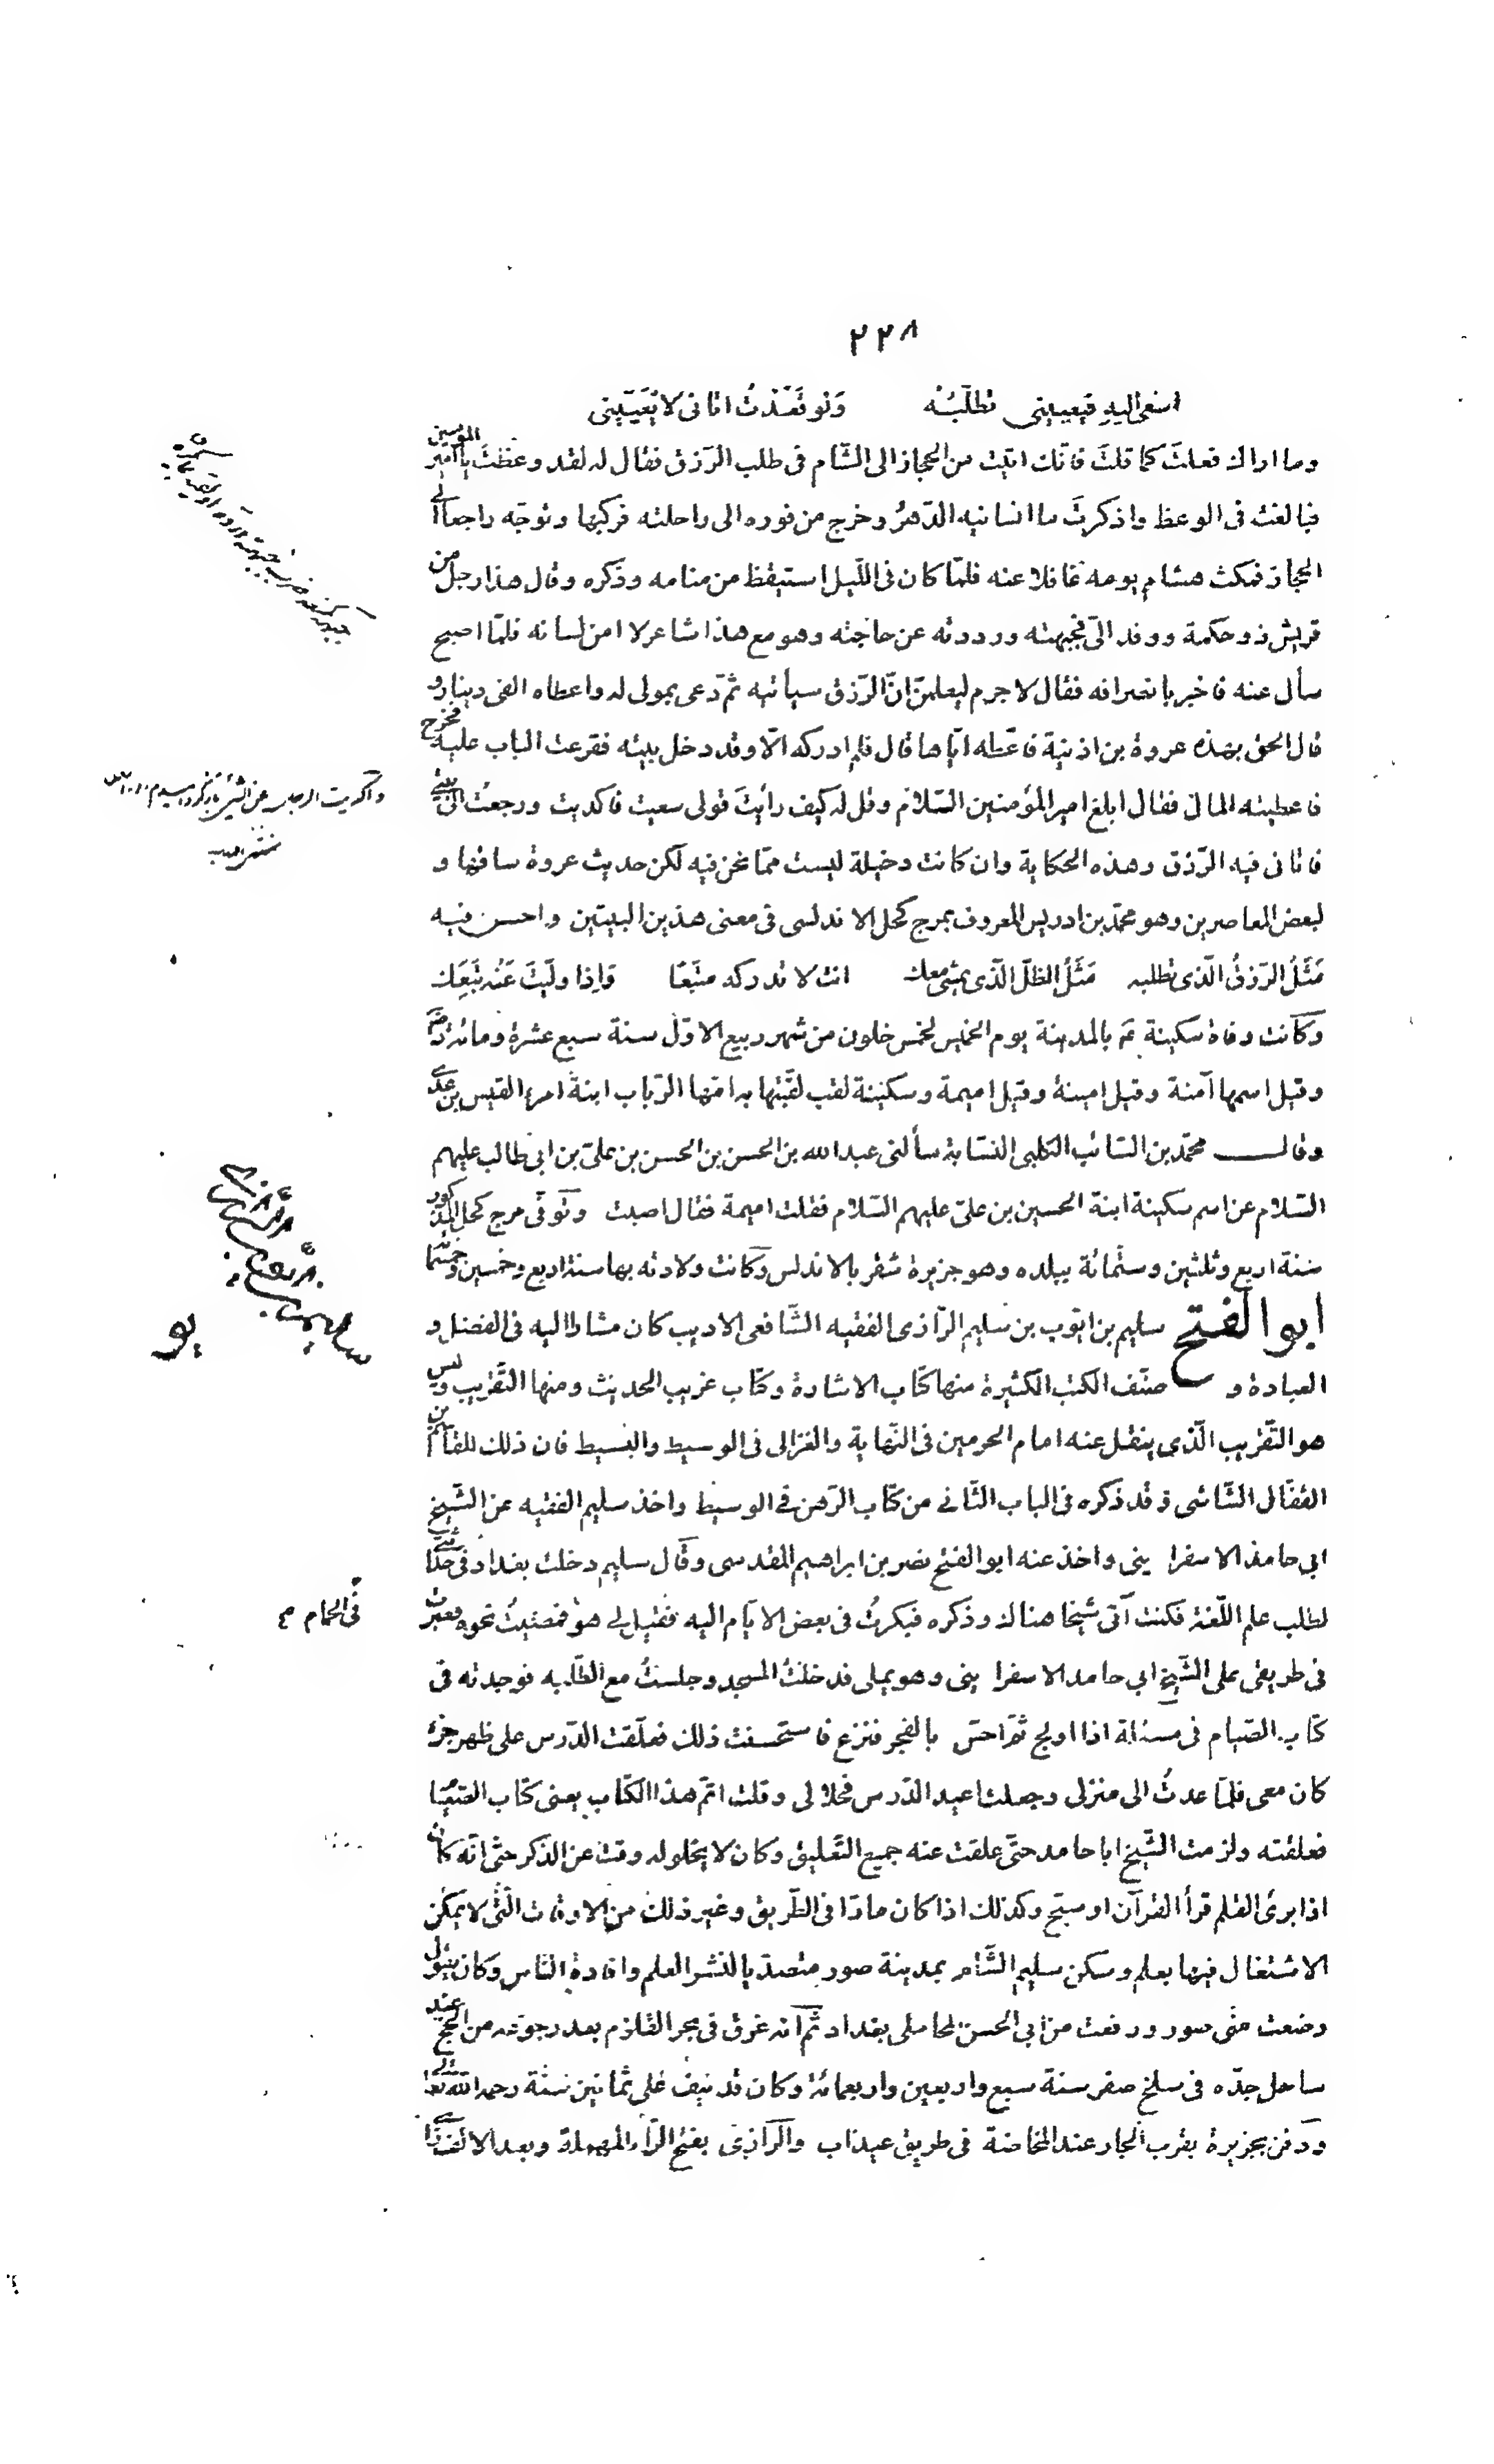 ٢٢٨
اسعى اليه فيعييني تطلّبُه ولو قعدتُ اتانى لا يُعَنّينى
وما اراك فعلتَ كما قلتَ فانّك اتيت من الحجاز الى الشّام فى طلب الرّزق فقال له لقد وعظتَ يا امير المؤمنين
فبالغت فى الوعظ واذكرتَ ما انسانيه الدّهرُ وخرج من فوره الى راحلته فركبها وتوجّه راجعا الى
الحجاز فمكث هشام يومه غافلا عنه فلمّا كان فى اللّيل استيقظ من منامه وذكره وقال هذا رجل من
قريش ذو حكمة ووفد الىّ فجبهته ورددته عن حاجته وهو مع هذا شاعر لا امن لسانه فلمّا اصبح
سأل عنه فاخبر بانصرافه فقال لا جرم ليعلمنّ انّ الرّزق سيأتيه ثمّ دعى بمولى له واعطاه الفى دينار و
قال الحق بهذه عروة بن اذينة فاعطه ايّاها قال فلم ادركه الّا وقد دخل بيته فقرعت الباب عليه فخرج
فاعطيته المال فقال ابلغ امير المؤمنين السّلام وقل له كيف رأيتَ قولى سعيت فاكديت ورجعتُ الى بيتى
فاتانى فيه الرّزق وهذه الحكاية وان كانت دخيلة ليست ممّا نحن فيه لكن حديث عروة ساقها و
لبعض المعاصرين وهو محمّد بن ادريس المعروف بمرج كحل الاندلسى فى معنى هذين البيتين واحسن فيه
مَثَلُ الرّزقُ الّذى تطلبه مَثَلُ الظلّ الّذى يمشى معك انت لا تدركه متّبعًا وَاِذا ولّيتَ عَنْه تَبَعَك
وكانت وفاة سكينة ع‍م بالمدينة يوم الخميس لخمس خلون من شهر ربيع الاوّل سنة سبع عشرة ومائة
وقيل اسمها آمنة وقيل امينة وقيل اميمة وسكينة لقب لقّبتها به امّها الرّباب ابنة امرء القيس بن عدى
وقال محمّد بن السّائب الكلبى النسّابة سألنى عبدالله بن الحسن بن الحسن بن علىّ بن ابى طالب عليهم
السّلام عن اسم سكينة ابنة الحسين بن علىّ عليهم السّلام فقلت اميمة فقال اصبت وتوفّى مرج كحل المذكور
سنة اربع وثلثين وستّمائة ببلده وهو جزيرة شقر بالاندلس وكانت ولادته بها سنة اربع وخمسين وخمسمائة
ابو الفتح سليم بن ايّوب بن سليم الرّازى الفقيه الشّافعى الاديب كان مشارا اليه فى الفضل و
العبادة و صنّف الكتب الكثيرة منها كتاب الاشارة وكتاب غريب الحديث ومنها التّقريب وليس
هو التّقريب الّذى ينقل عنه امام الحرمين فى النّهاية والغزالى فى الوسيط والبسيط فان ذلك للقاسم بن
القفّال الشّاشى وقد ذكره فى الباب الثّانى من كتاب الرّهن فى الوسيط واخذ سليم الفقيه عن الشّيخ
ابى حامد الاسفراينى واخذ عنه ابو الفتح نصر بن ابراهيم المقدسى وقال سليم دخلت بغداد فى حداثتى
لطلب علم اللّغة فكنت آتى شيخا هناك وذكره فبكرتُ فى بعض الايّام اليه فقيل لى هو فمضيتُ نحوه فعبرت
فى الحمام
فى طريقى على الشّيخ ابى حامد الاسفراينى وهو يملى فدخلتُ المسجد وجلستُ مع الطّلبه فوجدته فى
كتاب الصّيام فى مسئلة اذا اولج ثمّ احسّ بالفجر فنزع فاستحسنت ذلك فعلّقت الدّرس على ظهر جزء
كان معى فلمّا عدتُ الى منزلى وجعلت اعيد الدّرس فحلا لى وقلت اتمّ هذا الكتاب يعنى كتاب الصّيام
فعلقته ولزمت الشّيخ ابا حامد حتّى علقت عنه جميع التّعليق وكان لا يخلو له وقت عن الذكر حتّى انّه كان
اذا برئ القلم قرأ القرآن او سبّح وكذلك اذا كان مارّا فى الطّريق وغير ذلك من الاوقات الّتى لا يمكن
الاشتغال فيها بعلم وسكن سليم الشّام بمدينة صور متصديا لنشر العلم وافادة النّاس وكان يقول
وضعت منّى صور ورفعت من ابى الحسن المحاملى بغداد ثمّ انه غرق فى بحر القلزم بعد رجوعه من الحجّ عند
ساحل جدّه فى سلخ صفر سنة سبع واربعين واربعمائة وكان قد نيف على ثمانين سنة رحمه الله تعالى
ودفن بجزيرة بقرب الجار عند المخاضة فى طريق عيذاب والرّازى بفتح الرّاء المهملة وبعد الالف زا